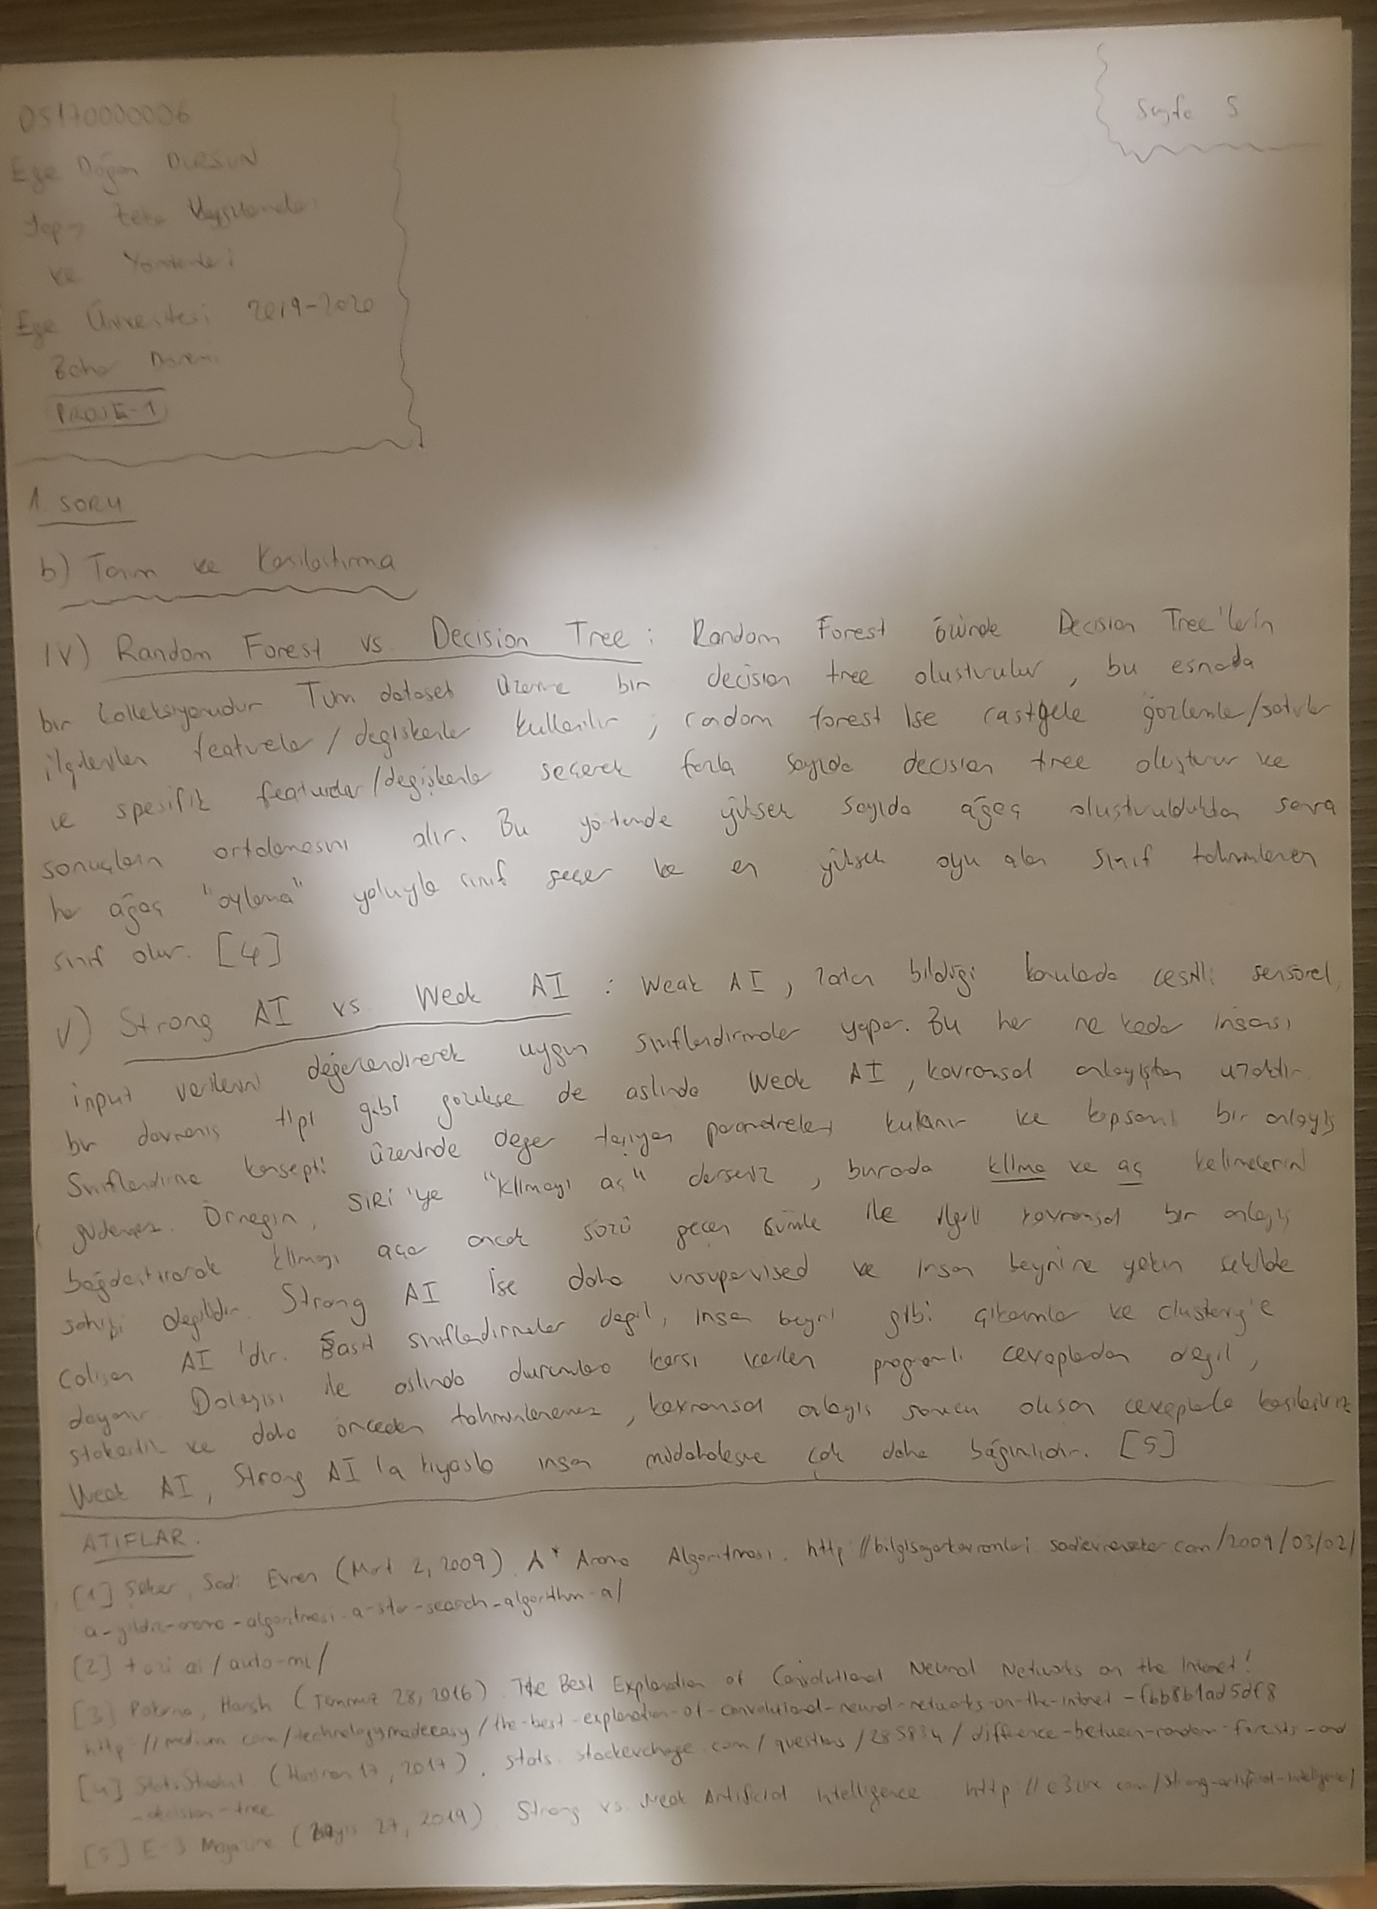 05170000006
Ege Doğan DURSUN
Yapay Zeka Uygulamaları
ve Yöntemleri
Ege Üniversitesi 2019-2020
Bahar Dönemi
PROJE-1
Sayfa 5
1. SORU
b) Tanım ve Karşılaştırma
IV) Random Forest vs. Decision Tree : Random Forest özünde Decision Tree'lerin
bir kolleksiyonudur. Tüm dataset üzerine bir decision tree oluşturulur, bu esnada
ilgilenilen featurelar/değişkenler kullanılır; random forest ise rastgele gözlemler/satırlar
ve spesifik featurelar/değişkenler seçerek fazla sayıda decision tree oluşturur ve
sonuçların ortalamasını alır. Bu yöntemde yüksek sayıda ağaç oluşturulduktan sonra
her ağaç "oylama" yoluyla sınıf seçer ve en yüksek oyu alan sınıf tahminlenen
sınıf olur. [4]
V) Strong AI vs. Weak AI : Weak AI, zaten bildiği konularda çeşitli sensörel
input verilerini değerlendirerek uygun sınıflandırmalar yapar. Bu her ne kadar insansı
bir davranış tipi gibi gözükse de aslında Weak AI, kavramsal anlayıştan uzaktır.
Sınıflandırma konsepti üzerinde değer taşıyan parametreleri kullanır ve kapsamlı bir anlayış
güdemez. Örneğin, SIRI'ye "Klimayı aç" derseniz, burada klima ve aç kelimelerini
bağdaştırarak klimayı açar ancak sözü geçen cümle ile ilgili kavramsal bir anlayış
sahibi değildir. Strong AI ise daha unsupervised ve insan beynine yakın şekilde
çalışan AI'dır. Basit sınıflandırmalar değil, insan beyni gibi çıkarımlar ve clustering'e
dayanır. Dolayısı ile aslında durumlara karşı verilen programlı cevaplardan değil,
stokastik ve daha önceden tahminlenemez, kavramsal anlayış sonucu oluşan cevaplarla karşılaşırız.
Weak AI, Strong AI'la kıyasla insan müdahalesine çok daha bağımlıdır. [5]
ATIFLAR.
[1] Şeker, Sadi Evren (Mart 2, 2009). A* Arama Algoritması. http://bilgisayarkavramlari.sadievrenseker.com/2009/03/02/
a-yildiz-arama-algoritmasi-a-star-search-algorithm-a/
[2] tazi.ai/auto-ml/
[3] Harsh (Temmuz 28, 2016). The Best Explanation of Convolutional Neural Networks on the Internet!
http://medium.com/technologymadeeasy/the-best-explanation-of-convolutional-neural-networks-on-the-internet-fbb8b1ad5df8
[4] (Haziran 17, 2017). stats.stackexchange.com/questions/285834/difference-between-random-forests-and
-decision-tree
[5] E-3 Magazine (Mayıs 27, 2019). Strong vs. Weak Artificial Intelligence. http://e3zine.com/strong-artificial-intelligence/